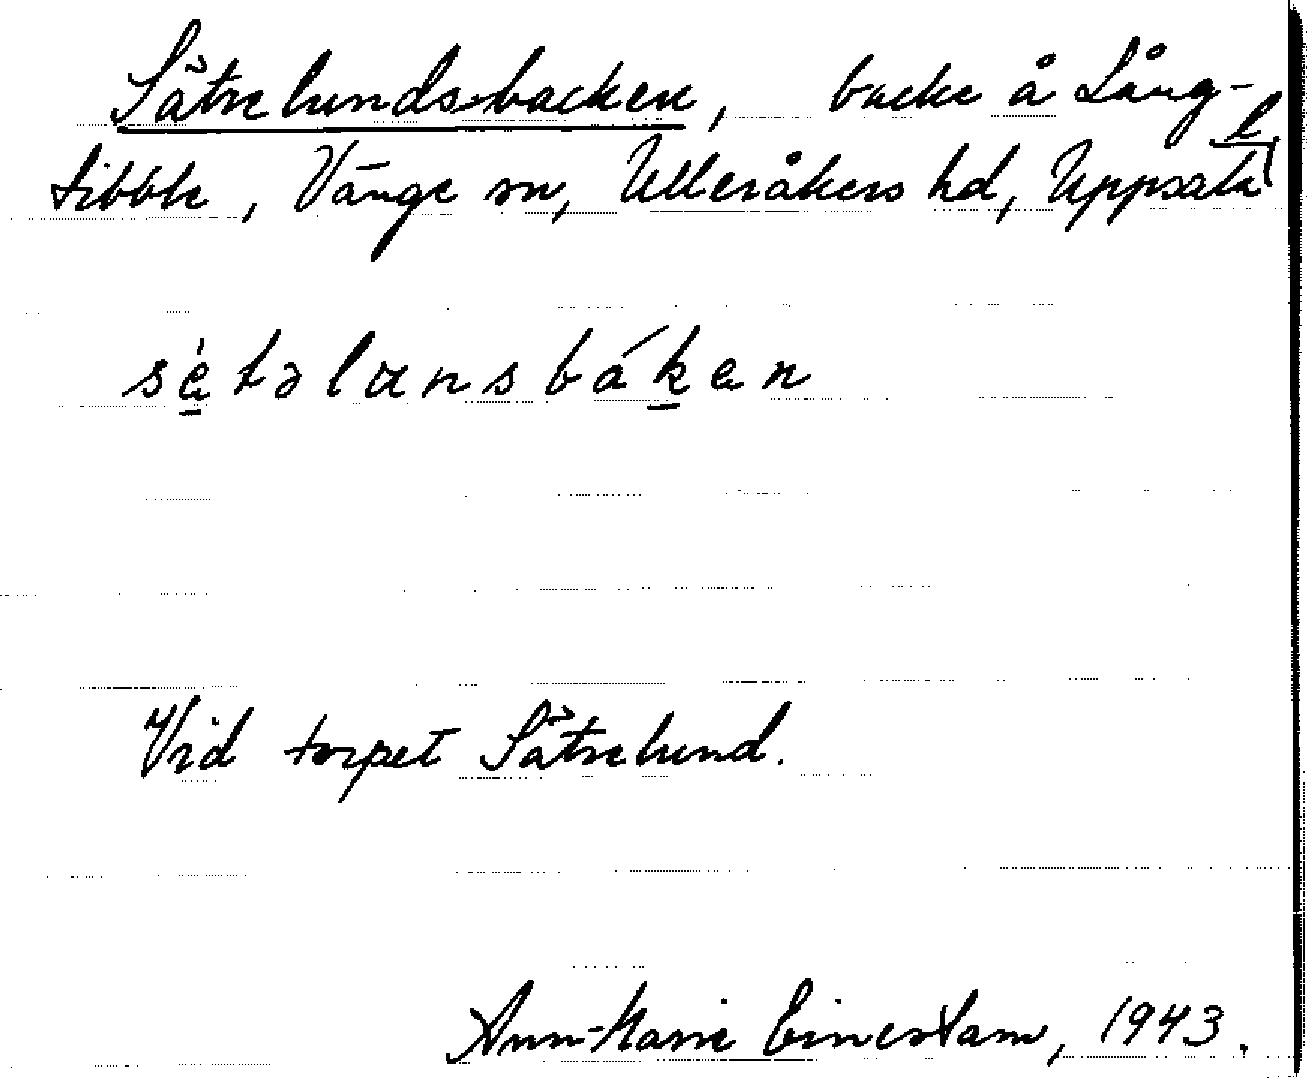 Sätrelundsbacken, backe å Lång-
tibble, Vänge sn, Ulleråkers hd, Uppsala l
sétəlansbákən
Vid torpet Sätrelund.
Ann-Marie Einerstam, 1943.